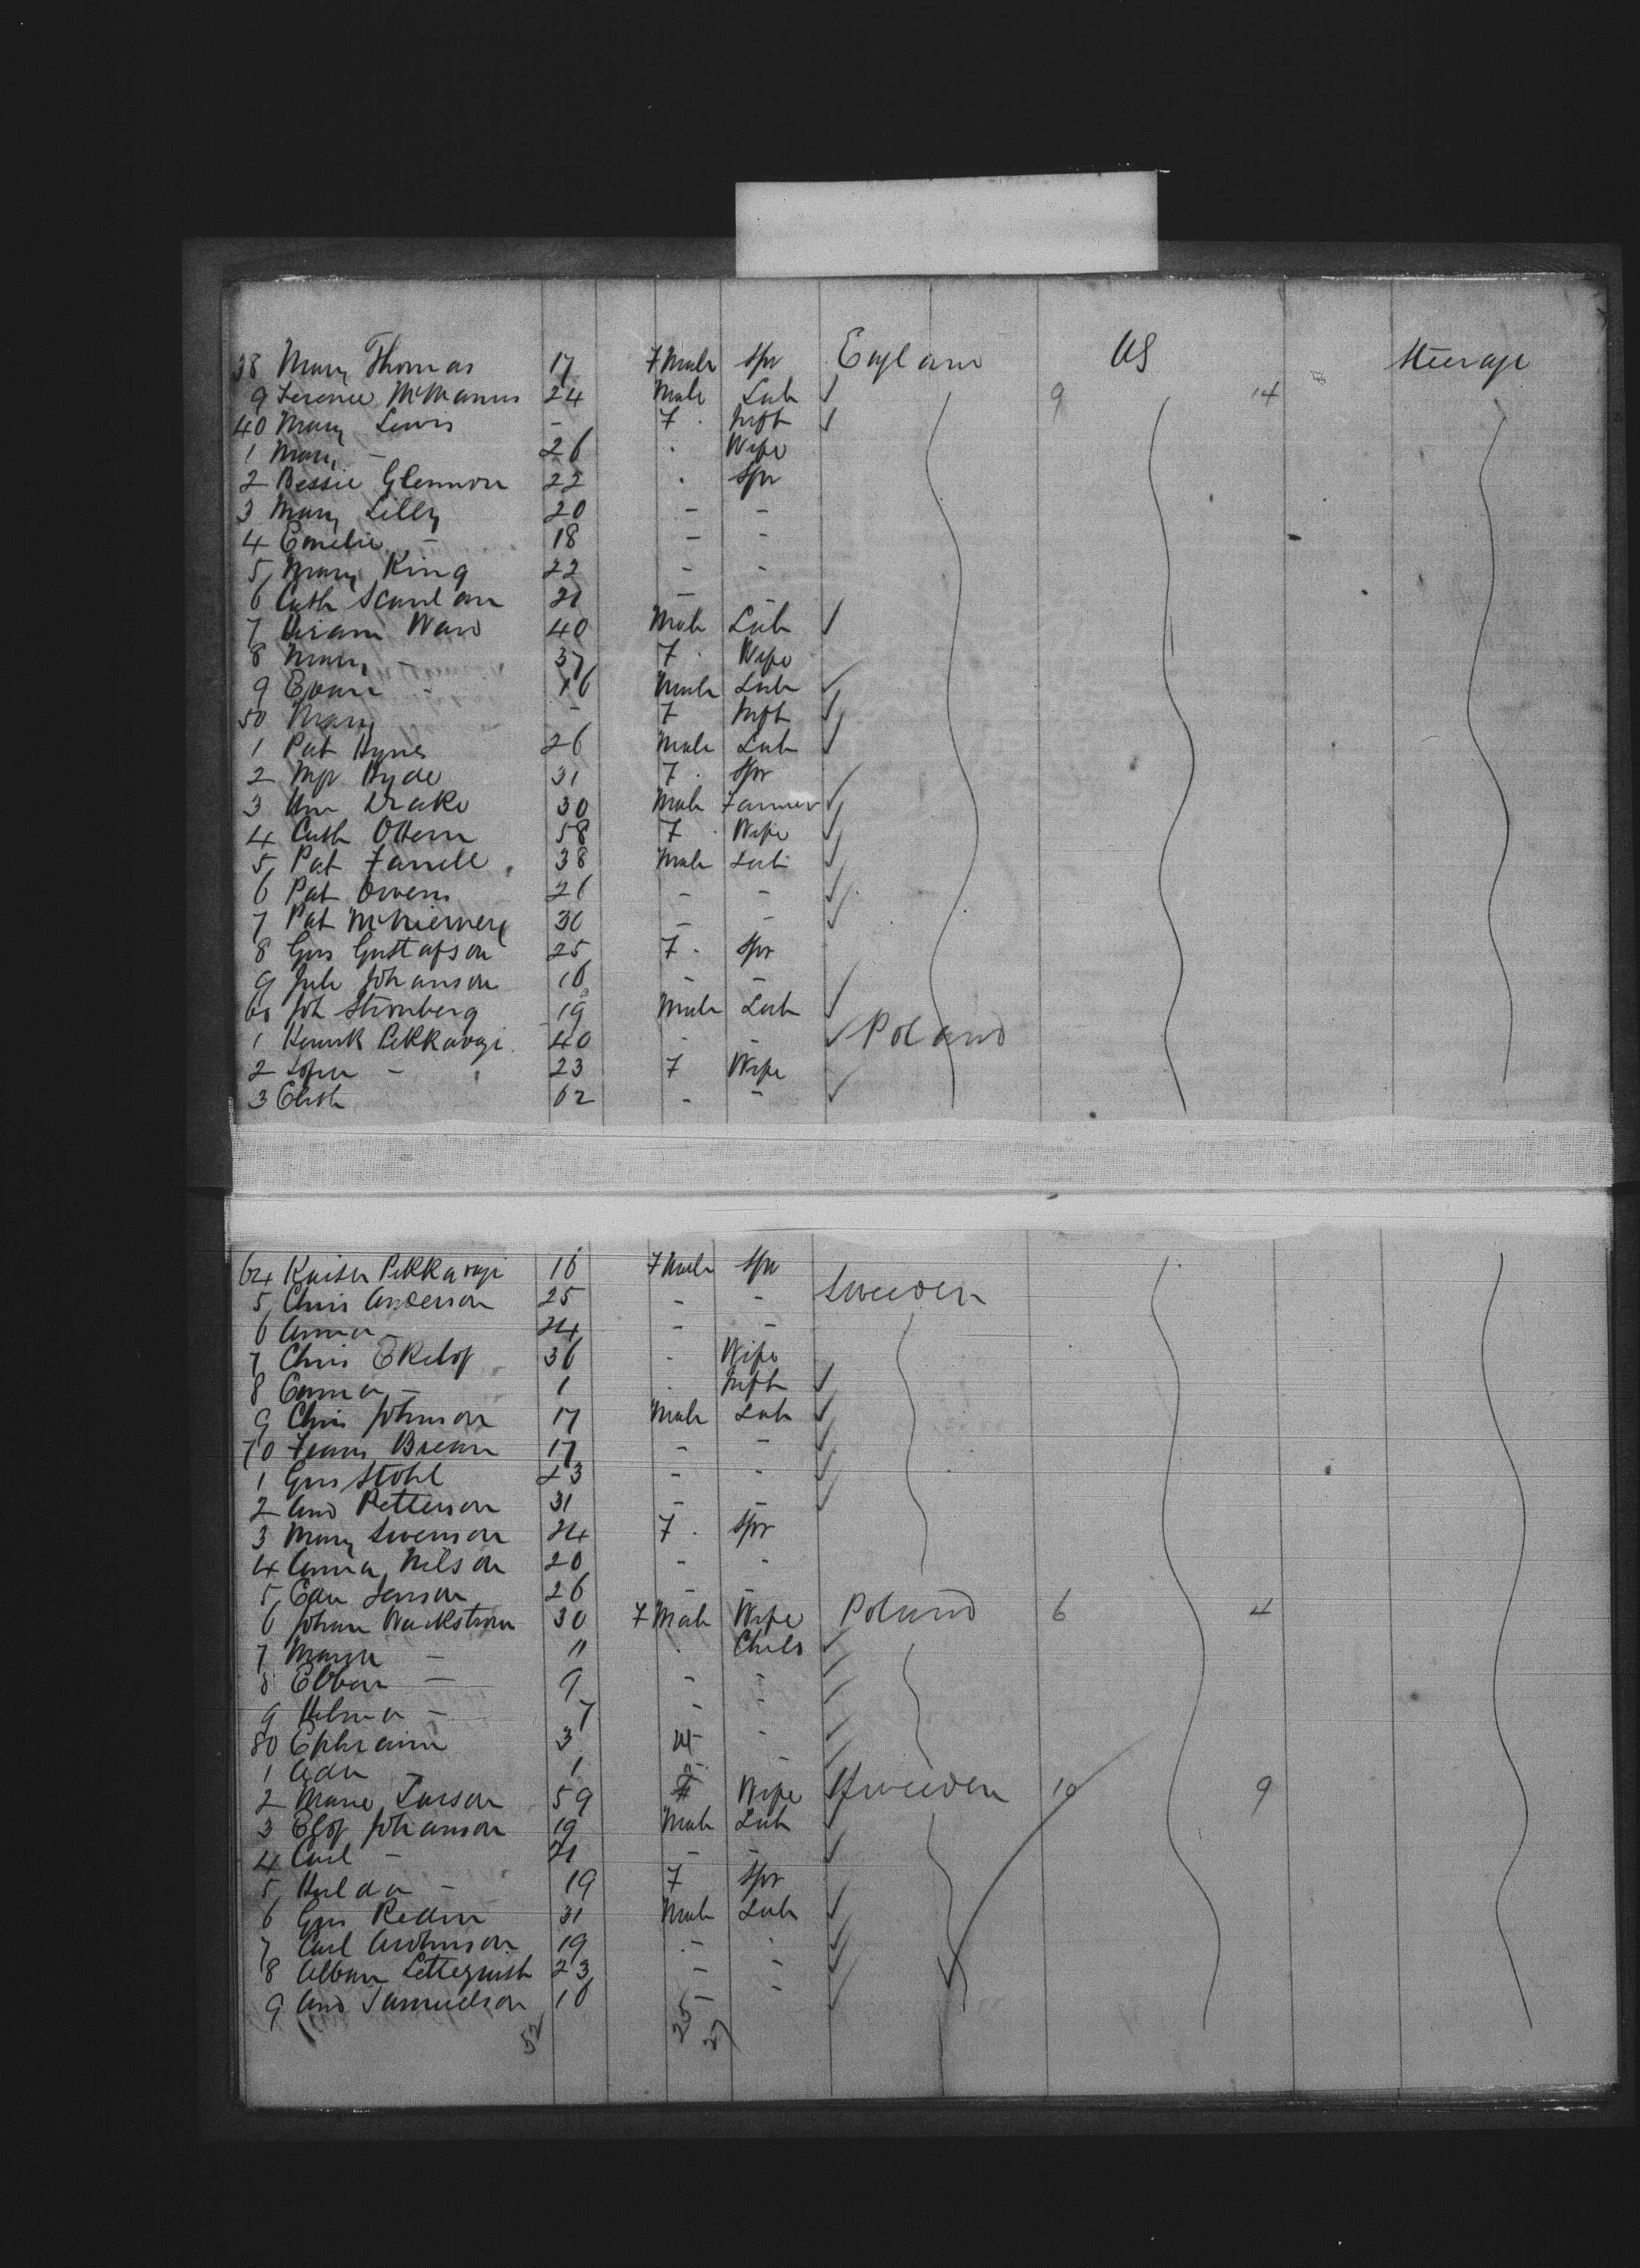 38 Mary Thomas 17 Fmale Spr England US Steerage
9 Terence McManus 24 Male Lab 9 14
40 Mary Lewis - F. Inft
1 Mary - 26 Wife
2 Bessie Glennon 22 Spr
3 Mary Lilly 20 - -
4 Emelie - 18 - -
5 Mary King 22 - -
6 Cath Scanlan 21 - -
7 Hiram Ward 40 Male Lab
8 Mary - 37 F. Wife
9 Evan - 16 Male Lab
50 Mary - F Inft
1 Pat Hynes 26 Male Lab
2 Hyde 31 F. Spr
3 Wm Drake 30 Male Farmer
4 Cath 58 F. Wife
5 Pat Farrell 38 Male Lab
6 Pat Owens 26 - -
7 Pat 30 - -
8 Gus Gustafson 25 F. Spr
9 Johanson 16 - -
60 Joh Stromberg 19 Male Lab
1 40 - - Poland
2 - 23 F Wife
3 62 - -
64 16 Fmale Spr
5 Chris Anderson 25 - - Sweden
6 Anna - 24 - -
7 Chris Ekelof 36 Wife
8 Emma - 1 Inft
9 Chris Johnson 17 Male Lab
70 17 - -
1 Gus Stohl 23 - -
2 And Petterson 31 - -
3 Mary Swenson 24 F. Spr
4 Anna Nilson 20 - -
5 26 - -
6 Johan Wackstrom 30 Fmale Wife Poland 6 4
7 - 11 Child
8 - 9 - -
9 Hilma - 7 - -
80 Ephraim 3 M -
1 Ada 1 -
2 Marie Larson 59 F Wife Sweden 10 9
3 Elof Johanson 19 Male Lab
4 Carl - 21 - -
5 Hulda - 19 F Spr
6 Gus 31 Male Lab
7 Carl 19 - -
8 23 - -
9 And Samuelson 16 - -
52 25 27